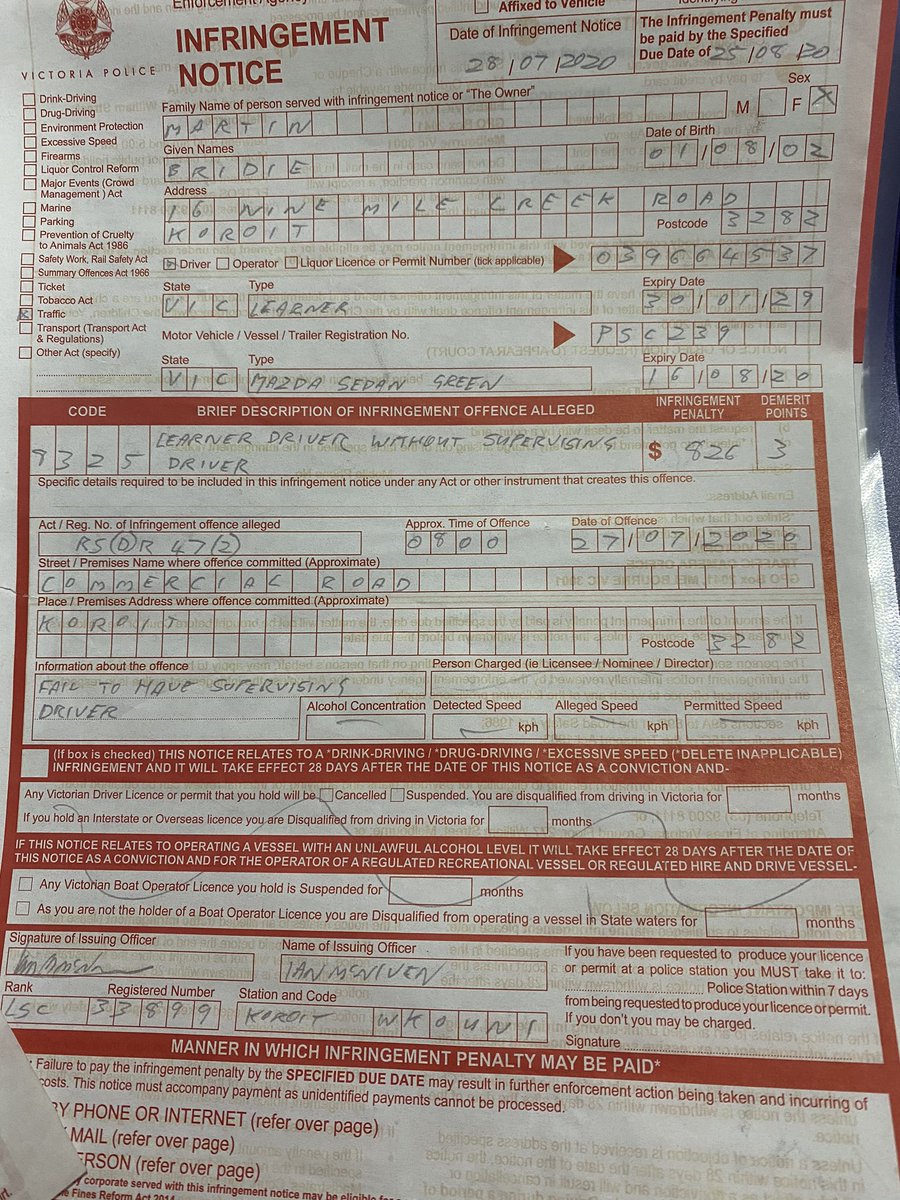 Enforcement Agency
Affixed to Vehicle
INFRINGEMENT
NOTICE
VICTORIA POLICE
Date of Infringement Notice
28/07/2020
The Infringement Penalty must
be paid by the Specified
Due Date of 25/08/20
Drink-Driving
Drug-Driving
Environment Protection
Excessive Speed
Firearms
Liquor Control Reform
Major Events (Crowd
Management) Act
Marine
Parking
Prevention of Cruelty
to Animals Act 1986
Safety Work, Rail Safety Act
Summary Offences Act 1966
Ticket
Tobacco Act
X Traffic
Transport (Transport Act
& Regulations)
Other Act (specify)
Family Name of person served with infringement notice or "The Owner"
Sex
M F X
MARTIN
Given Names
Date of Birth
BRIDIE
01/08/02
Address
16 NINE MILE CREEK ROAD
KOROIT
Postcode 3282
Driver Operator Liquor Licence or Permit Number (tick applicable)
039664537
State Type Expiry Date
VIC LEARNER 30/01/29
Motor Vehicle / Vessel / Trailer Registration No.
PSC239
State Type Expiry Date
VIC MAZDA SEDAN GREEN 16/08/20
CODE BRIEF DESCRIPTION OF INFRINGEMENT OFFENCE ALLEGED INFRINGEMENT PENALTY DEMERIT POINTS
8325 LEARNER DRIVER WITHOUT SUPERVISING
DRIVER
$ 826 3
Specific details required to be included in this infringement notice under any Act or other instrument that creates this offence.
Act / Reg. No. of Infringement offence alleged Approx. Time of Offence Date of Offence
RS(D)R 47(2) 0800 27/07/2020
Street / Premises Name where offence committed (Approximate)
COMMERCIAL ROAD
Place / Premises Address where offence committed (Approximate)
KOROIT
Postcode 3282
Information about the offence Person Charged (ie Licensee / Nominee / Director)
FAIL TO HAVE SUPERVISING
DRIVER
Alcohol Concentration Detected Speed Alleged Speed Permitted Speed
kph kph kph
(If box is checked) THIS NOTICE RELATES TO A *DRINK-DRIVING / *DRUG-DRIVING / *EXCESSIVE SPEED (*DELETE INAPPLICABLE)
INFRINGEMENT AND IT WILL TAKE EFFECT 28 DAYS AFTER THE DATE OF THIS NOTICE AS A CONVICTION AND-
Any Victorian Driver Licence or permit that you hold will be Cancelled Suspended. You are disqualified from driving in Victoria for months
If you hold an Interstate or Overseas licence you are Disqualified from driving in Victoria for months
IF THIS NOTICE RELATES TO OPERATING A VESSEL WITH AN UNLAWFUL ALCOHOL LEVEL IT WILL TAKE EFFECT 28 DAYS AFTER THE DATE OF
THIS NOTICE AS A CONVICTION AND FOR THE OPERATOR OF A REGULATED RECREATIONAL VESSEL OR REGULATED HIRE AND DRIVE VESSEL-
Any Victorian Boat Operator Licence you hold is Suspended for months
As you are not the holder of a Boat Operator Licence you are Disqualified from operating a vessel in State waters for months
Signature of Issuing Officer Name of Issuing Officer
IAN MCNIVEN
Rank Registered Number Station and Code
LSC 33899 KOROIT WKOUNI
If you have been requested to produce your licence
or permit at a police station you MUST take it to:
Police Station within 7 days
from being requested to produce your licence or permit.
If you don't you may be charged.
Signature
MANNER IN WHICH INFRINGEMENT PENALTY MAY BE PAID*
Failure to pay the infringement penalty by the SPECIFIED DUE DATE may result in further enforcement action being taken and incurring of
costs. This notice must accompany payment as unidentified payments cannot be processed.
BY PHONE OR INTERNET (refer over page)
MAIL (refer over page)
PERSON (refer over page)
corporate served with this infringement notice may be eligible for
Fines Reform Act 2014